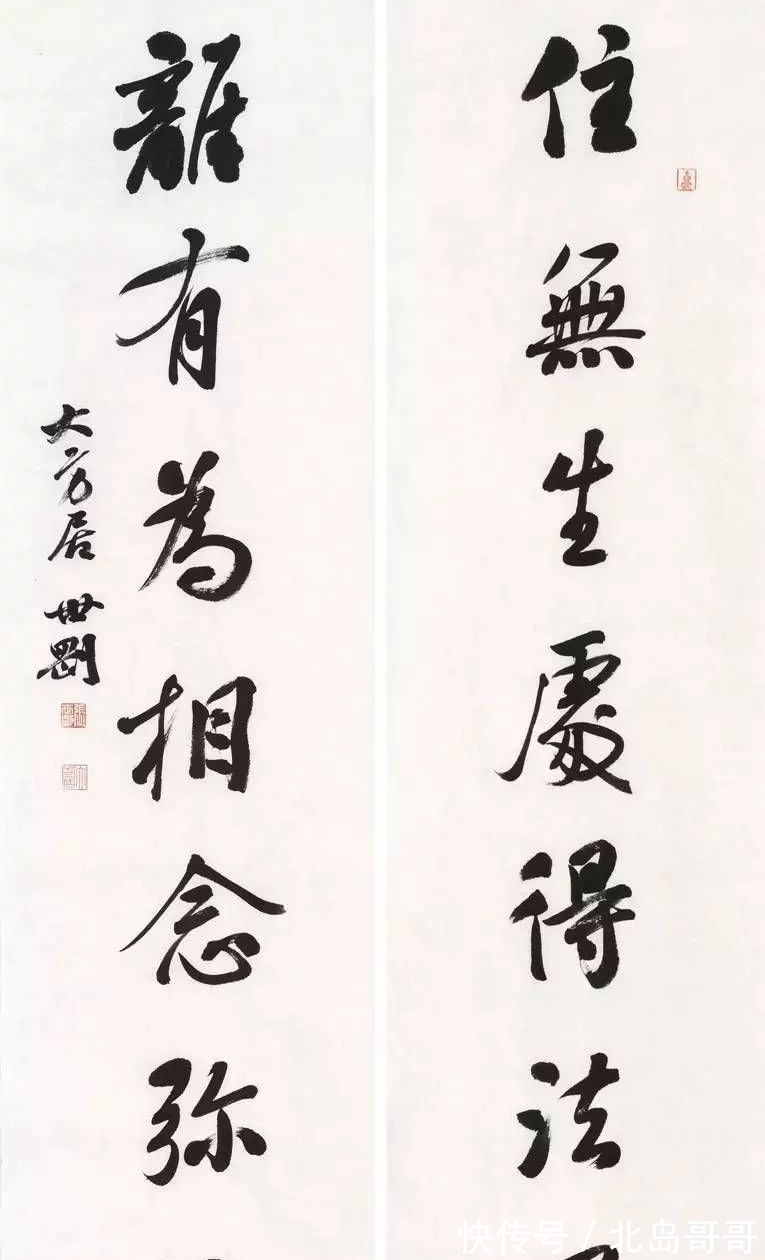 住無生處得法
離有為相念弥
大方居 世剛
快传号 / 北岛哥哥